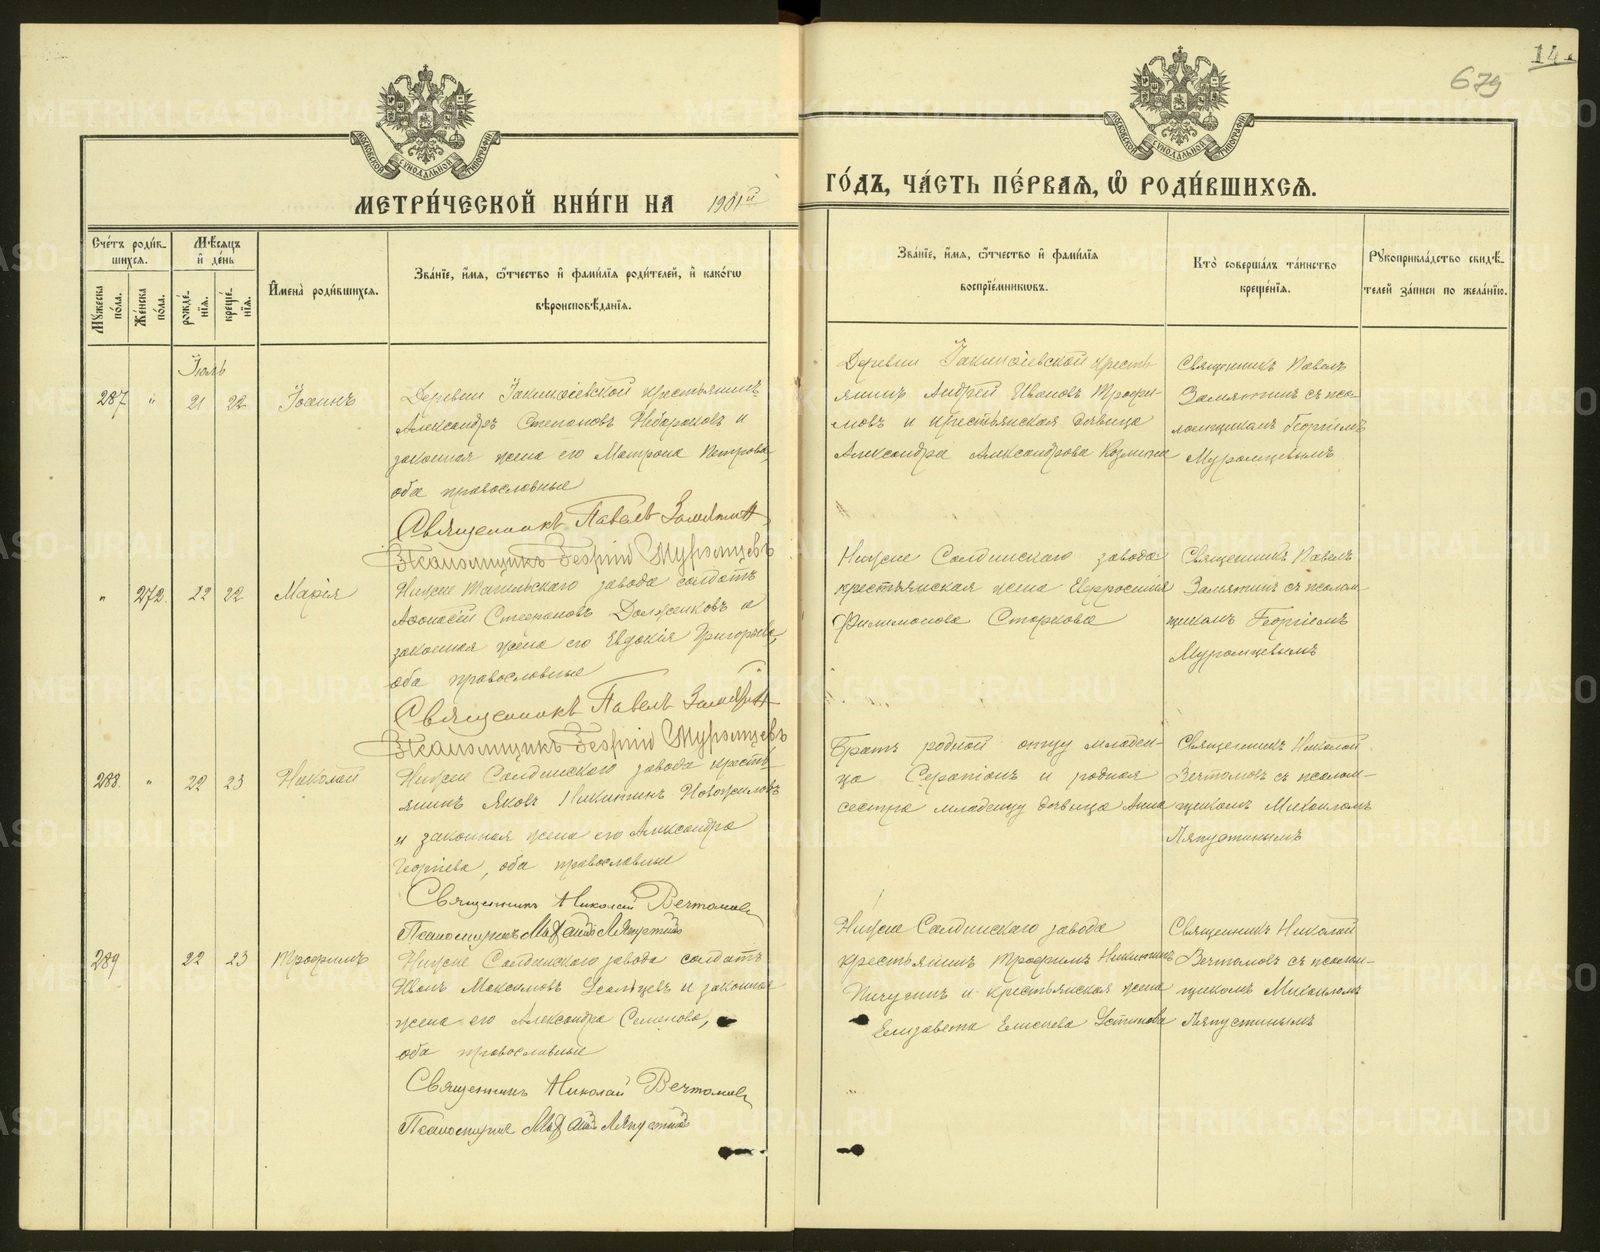 14.
679
МОСКОВСКОЙ СѴНОДАЛЬНОЙ ТИПОГРАФІИ
МОСКОВСКОЙ СѴНОДАЛЬНОЙ ТИПОГРАФІИ
МЕТРИ́ЧЕСКОЙ КНИ́ГИ НА 1901й
ГО́ДЪ, ЧА́СТЬ ПЕ́РВАѦ, Ѡ РОДИ́ВШИХСѦ.
Сче́тъ роди́в-
шихсѧ.
Мꙋ́жеска
по́ла.
Же́нска
по́ла.
Мѣ́сѧцъ
и҆ де́нь
рожде́-
нїѧ.
креще́-
нїѧ.
И҆мена̀ роди́вшихсѧ.
Зва́нїе, и҆́мѧ, ѻ҆́тчество и҆ фами́лїѧ роди́телей, и҆ како́гѡ
вѣроисповѣ́данїѧ.
Зва́нїе, и҆́мѧ, ѻ҆́тчество и҆ фами́лїѧ
воспрїе́мникѡвъ.
Кто̀ соверша́лъ та́инство
креще́нїѧ.
Рꙋкоприкла́дство свидѣ́-
телей за́писи по жела́нїю.
Іюль
287 " 21 22 Іоаннъ
Деревни Іакинѳіевской крестьянинъ
Александръ Степановъ и
законная жена его Матрона Петрова,
оба православные
Священникъ Павелъ Замятин
Псаломщикъ Георгій Муромцевъ
Деревни Іакинѳіевской кресть-
янинъ Андрей Ивановъ Трофи-
мовъ и крестьянская дѣвица
Александра Александрова Козмина
Священникъ Павелъ
Замятинъ съ пса-
ломщикомъ Георгіемъ
Муромцевымъ
" 272. 22 22 Марія
Нижне Тагильскаго завода солдатъ
Аѳонасій Степановъ Долженковъ и
законная жена его Евдокія Григорьева,
оба православные
Священникъ Павелъ Замятин
Псаломщикъ Георгій Муромцевъ
Нижне Салдинскаго завода
крестьянская жена Евфросинія
Филимонова Старкова
Священникъ Павелъ
Замятинъ съ псалом-
щикомъ Георгіемъ
Муромцевымъ
288. " 22 23 Николай
Нижне Салдинскаго завода кресть-
янинъ Яковъ Никитинъ Новожиловъ
и законная жена его Александра
Георгіева, оба православные
Священникъ Николай Вечтомовъ
Псаломщикъ Михаилъ Ляпустинъ
Братъ родной отцу младен-
ца Серапіонъ и родная
сестра младенцу дѣвица Анна
Священникъ Николай
Вечтомовъ съ псалом-
щикомъ Михаиломъ
Ляпустинымъ
289 22 23 Трофимъ
Нижне Салдинскаго завода солдатъ
Иванъ Максимовъ Усальцевъ и законная
жена его Александра Семенова,
оба православные
Священникъ Николай Вечтомовъ
Псаломщикъ Михаилъ Ляпустинъ
Нижне Салдинскаго завода
крестьянинъ Трофимъ Никитинъ
Пичугинъ и крестьянская жена
Елизавета Елисеева Устинова
Священникъ Николай
Вечтомовъ съ псалом-
щикомъ Михаиломъ
Ляпустинымъ
METRIKI.GASO-URAL.RU